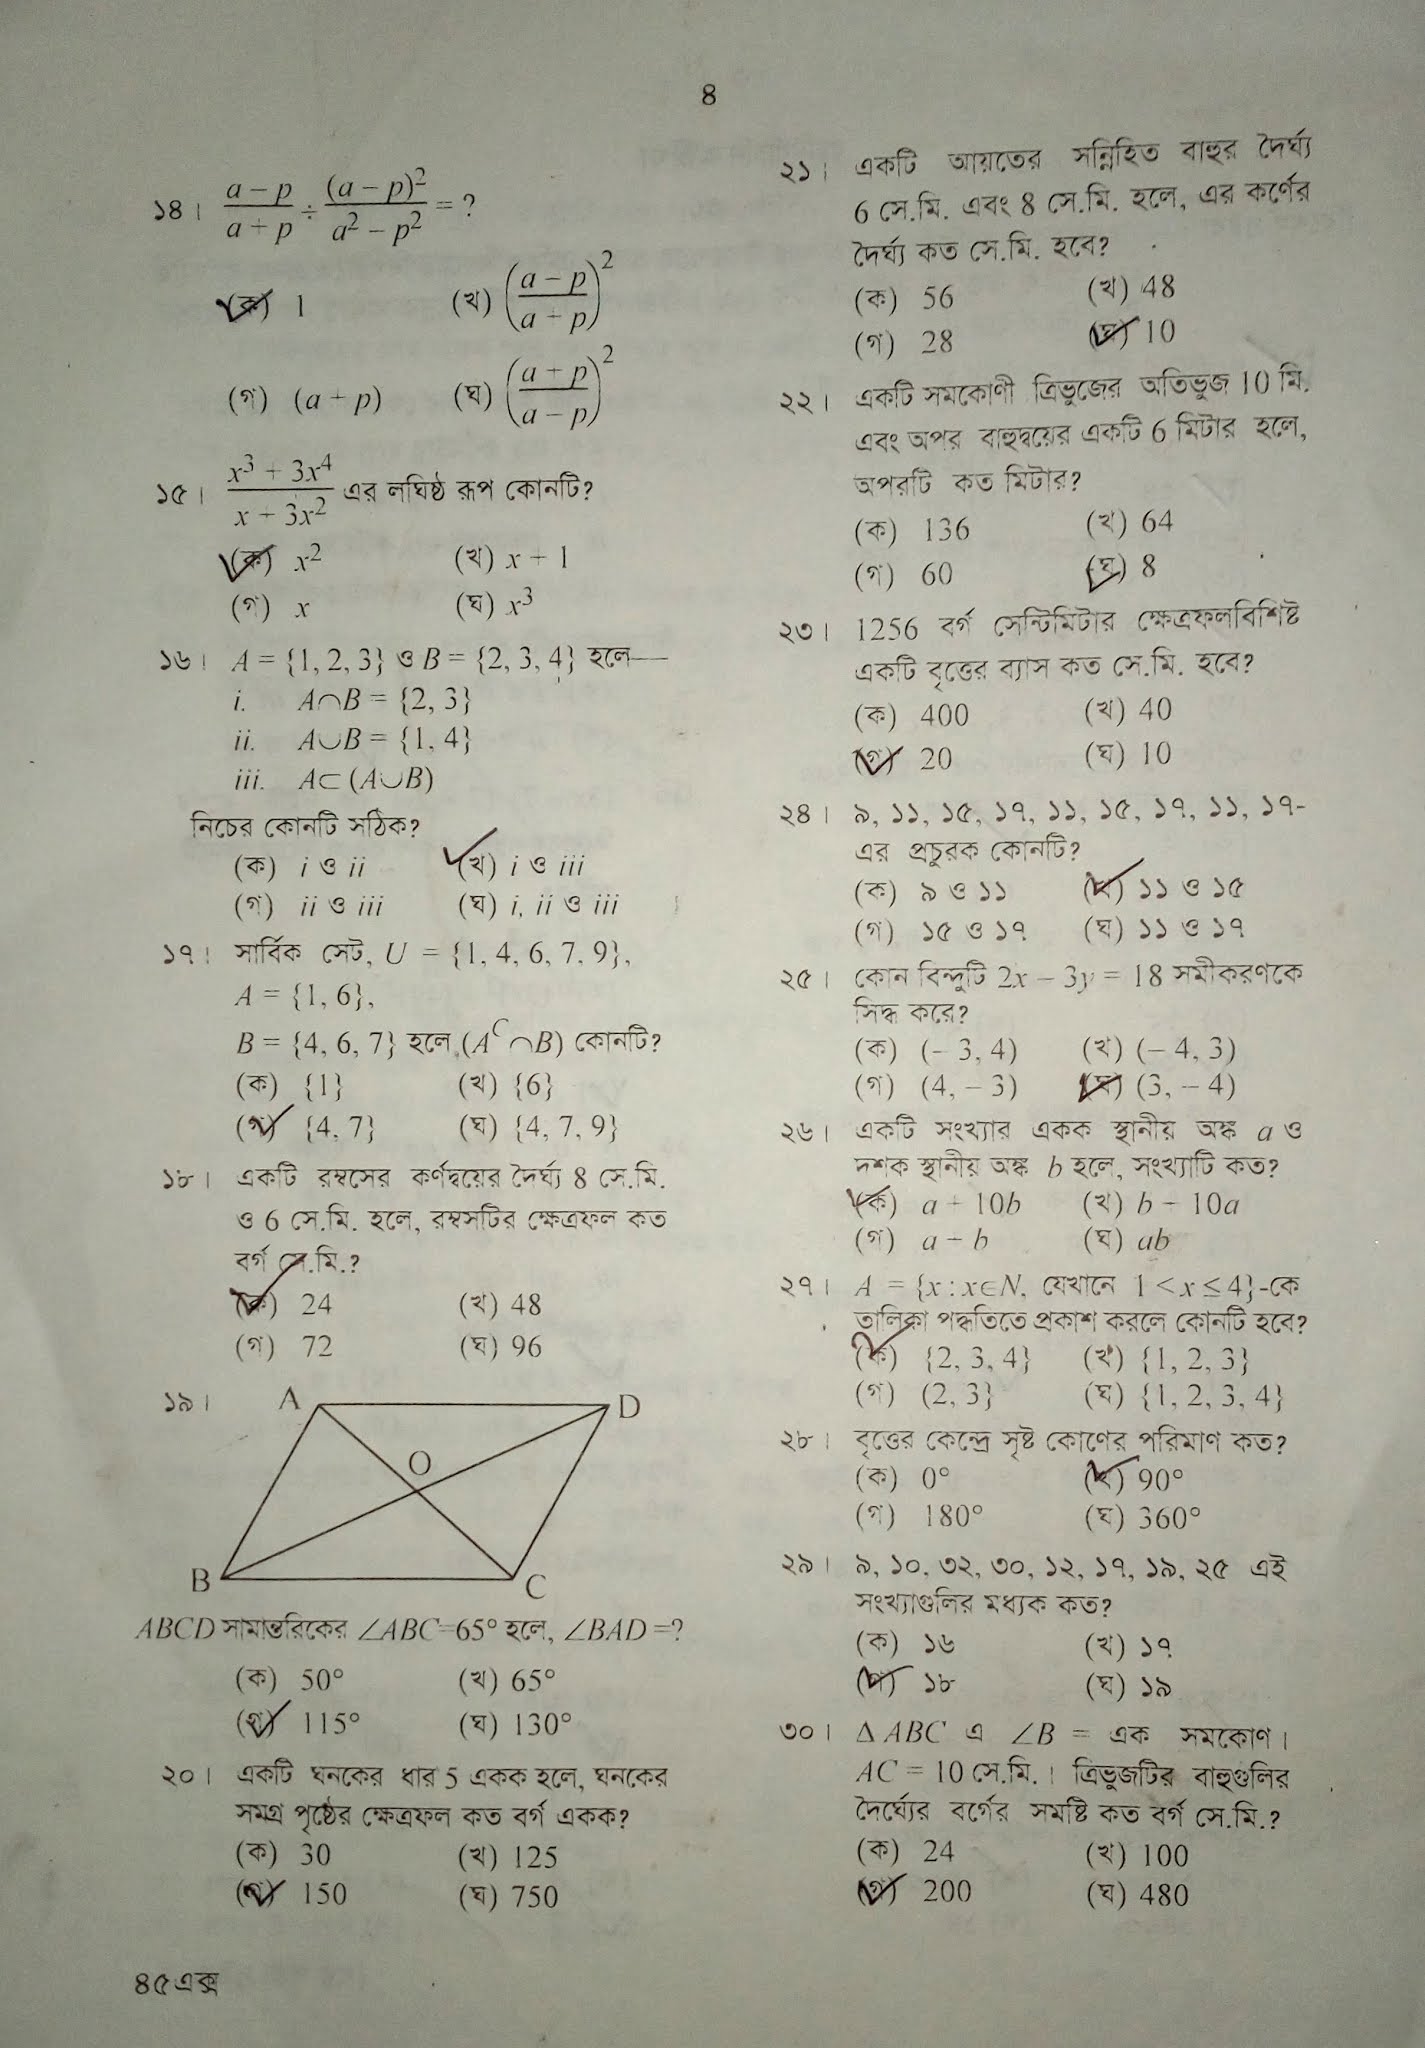 ৪
১৪। a – p / a + p ÷ (a – p)² / a² – p² = ?
(ক) 1 (খ) (a – p / a + p)²
(গ) (a + p) (ঘ) (a + p / a – p)²
১৫। x³ + 3x⁴ / x + 3x² এর লঘিষ্ঠ রূপ কোনটি?
(ক) x² (খ) x + 1
(গ) x (ঘ) x³
১৬। A = {1, 2, 3} ও B = {2, 3, 4} হলে—
i. A∩B = {2, 3}
ii. A∪B = {1, 4}
iii. A⊂ (A∪B)
নিচের কোনটি সঠিক?
(ক) i ও ii (খ) i ও iii
(গ) ii ও iii (ঘ) i, ii ও iii
১৭। সার্বিক সেট, U = {1, 4, 6, 7, 9},
A = {1, 6},
B = {4, 6, 7} হলে, (Aᶜ∩B) কোনটি?
(ক) {1} (খ) {6}
(গ) {4, 7} (ঘ) {4, 7, 9}
১৮। একটি রম্বসের কর্ণদ্বয়ের দৈর্ঘ্য 8 সে.মি.
ও 6 সে.মি. হলে, রম্বসটির ক্ষেত্রফল কত
বর্গ সে.মি.?
(ক) 24 (খ) 48
(গ) 72 (ঘ) 96
১৯।
A D
O
B C
ABCD সামান্তরিকের ∠ABC=65° হলে, ∠BAD =?
(ক) 50° (খ) 65°
(গ) 115° (ঘ) 130°
২০। একটি ঘনকের ধার 5 একক হলে, ঘনকের
সমগ্র পৃষ্ঠের ক্ষেত্রফল কত বর্গ একক?
(ক) 30 (খ) 125
(গ) 150 (ঘ) 750
৪৫এক্স
২১। একটি আয়তের সন্নিহিত বাহুর দৈর্ঘ্য
6 সে.মি. এবং 8 সে.মি. হলে, এর কর্ণের
দৈর্ঘ্য কত সে.মি. হবে?
(ক) 56 (খ) 48
(গ) 28 (ঘ) 10
২২। একটি সমকোণী ত্রিভুজের অতিভুজ 10 মি.
এবং অপর বাহুদ্বয়ের একটি 6 মিটার হলে,
অপরটি কত মিটার?
(ক) 136 (খ) 64
(গ) 60 (ঘ) 8
২৩। 1256 বর্গ সেন্টিমিটার ক্ষেত্রফলবিশিষ্ট
একটি বৃত্তের ব্যাস কত সে.মি. হবে?
(ক) 400 (খ) 40
(গ) 20 (ঘ) 10
২৪। ৯, ১১, ১৫, ১৭, ১১, ১৫, ১৭, ১১, ১৭-
এর প্রচুরক কোনটি?
(ক) ৯ ও ১১ (খ) ১১ ও ১৫
(গ) ১৫ ও ১৭ (ঘ) ১১ ও ১৭
২৫। কোন বিন্দুটি 2x – 3y = 18 সমীকরণকে
সিদ্ধ করে?
(ক) (– 3, 4) (খ) (– 4, 3)
(গ) (4, – 3) (ঘ) (3, – 4)
২৬। একটি সংখ্যার একক স্থানীয় অঙ্ক a ও
দশক স্থানীয় অঙ্ক b হলে, সংখ্যাটি কত?
(ক) a + 10b (খ) b + 10a
(গ) a + b (ঘ) ab
২৭। A = {x : x∈N, যেখানে 1 < x ≤ 4}-কে
তালিকা পদ্ধতিতে প্রকাশ করলে কোনটি হবে?
(ক) {2, 3, 4} (খ) {1, 2, 3}
(গ) (2, 3} (ঘ) {1, 2, 3, 4}
২৮। বৃত্তের কেন্দ্রে সৃষ্ট কোণের পরিমাণ কত?
(ক) 0° (খ) 90°
(গ) 180° (ঘ) 360°
২৯। ৯, ১০, ৩২, ৩০, ১২, ১৭, ১৯, ২৫ এই
সংখ্যাগুলির মধ্যক কত?
(ক) ১৬ (খ) ১৭
(গ) ১৮ (ঘ) ১৯
৩০। Δ ABC এ ∠B = এক সমকোণ।
AC = 10 সে.মি.। ত্রিভুজটির বাহুগুলির
দৈর্ঘ্যের বর্গের সমষ্টি কত বর্গ সে.মি.?
(ক) 24 (খ) 100
(গ) 200 (ঘ) 480